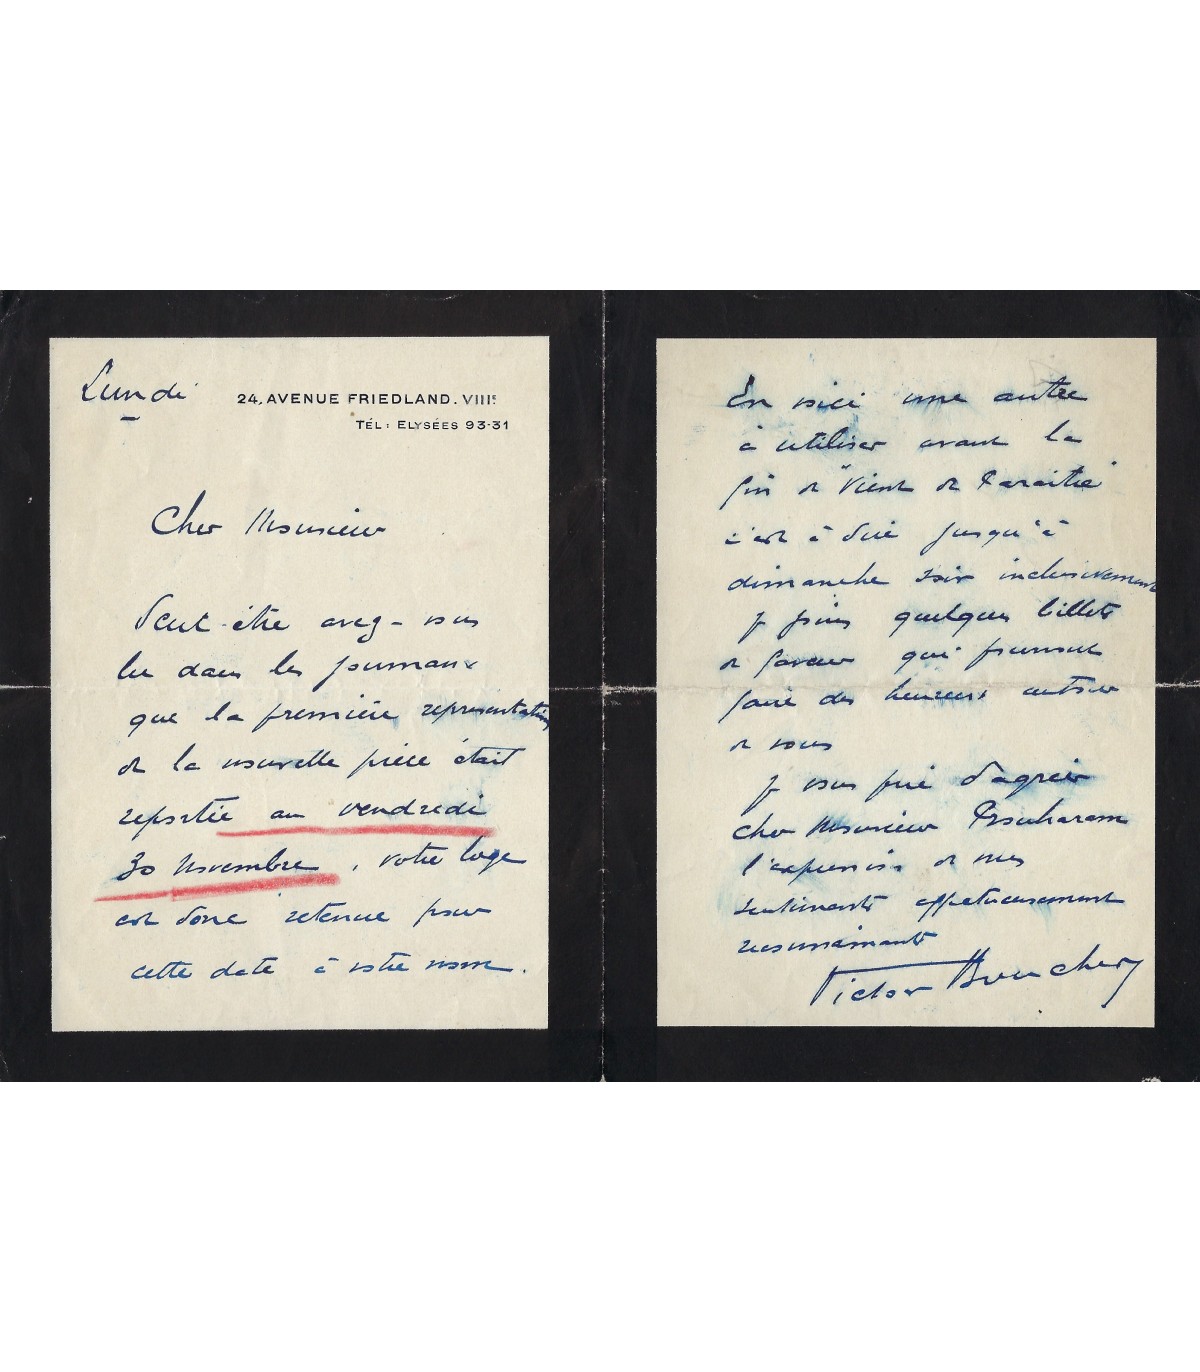 Lundi
24, AVENUE FRIEDLAND. VIIIE
TÉL : ELYSÉES 93-31
Cher Monsieur
Peut-être avez-vous
lu dans les journaux
que la première représentation
de la nouvelle pièce était
reportée au vendredi
30 Novembre, votre loge
est donc retenue pour
cette date à votre nom.
En voici une autre
à utiliser avant la
fin de "Vient de Paraitre"
c'est à dire jusqu'à
dimanche soir inclusivement
Je joins quelques billets
de faveur qui pourront
faire des heureux autour
de vous
Je vous prie d'agréer
cher Monsieur
l'expression de mes
sentiments affectueusement
reconnaissants
Victor Boucher